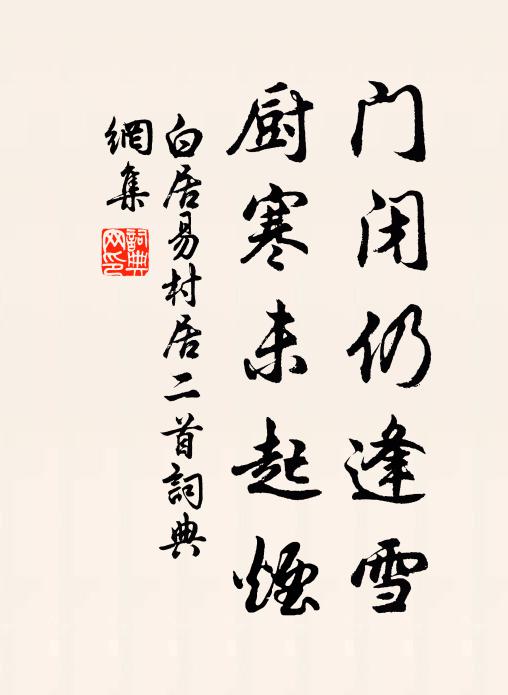 门闭仍逢雪
厨寒未起煙
白居易村居二首詞典
網集
詞典
网印